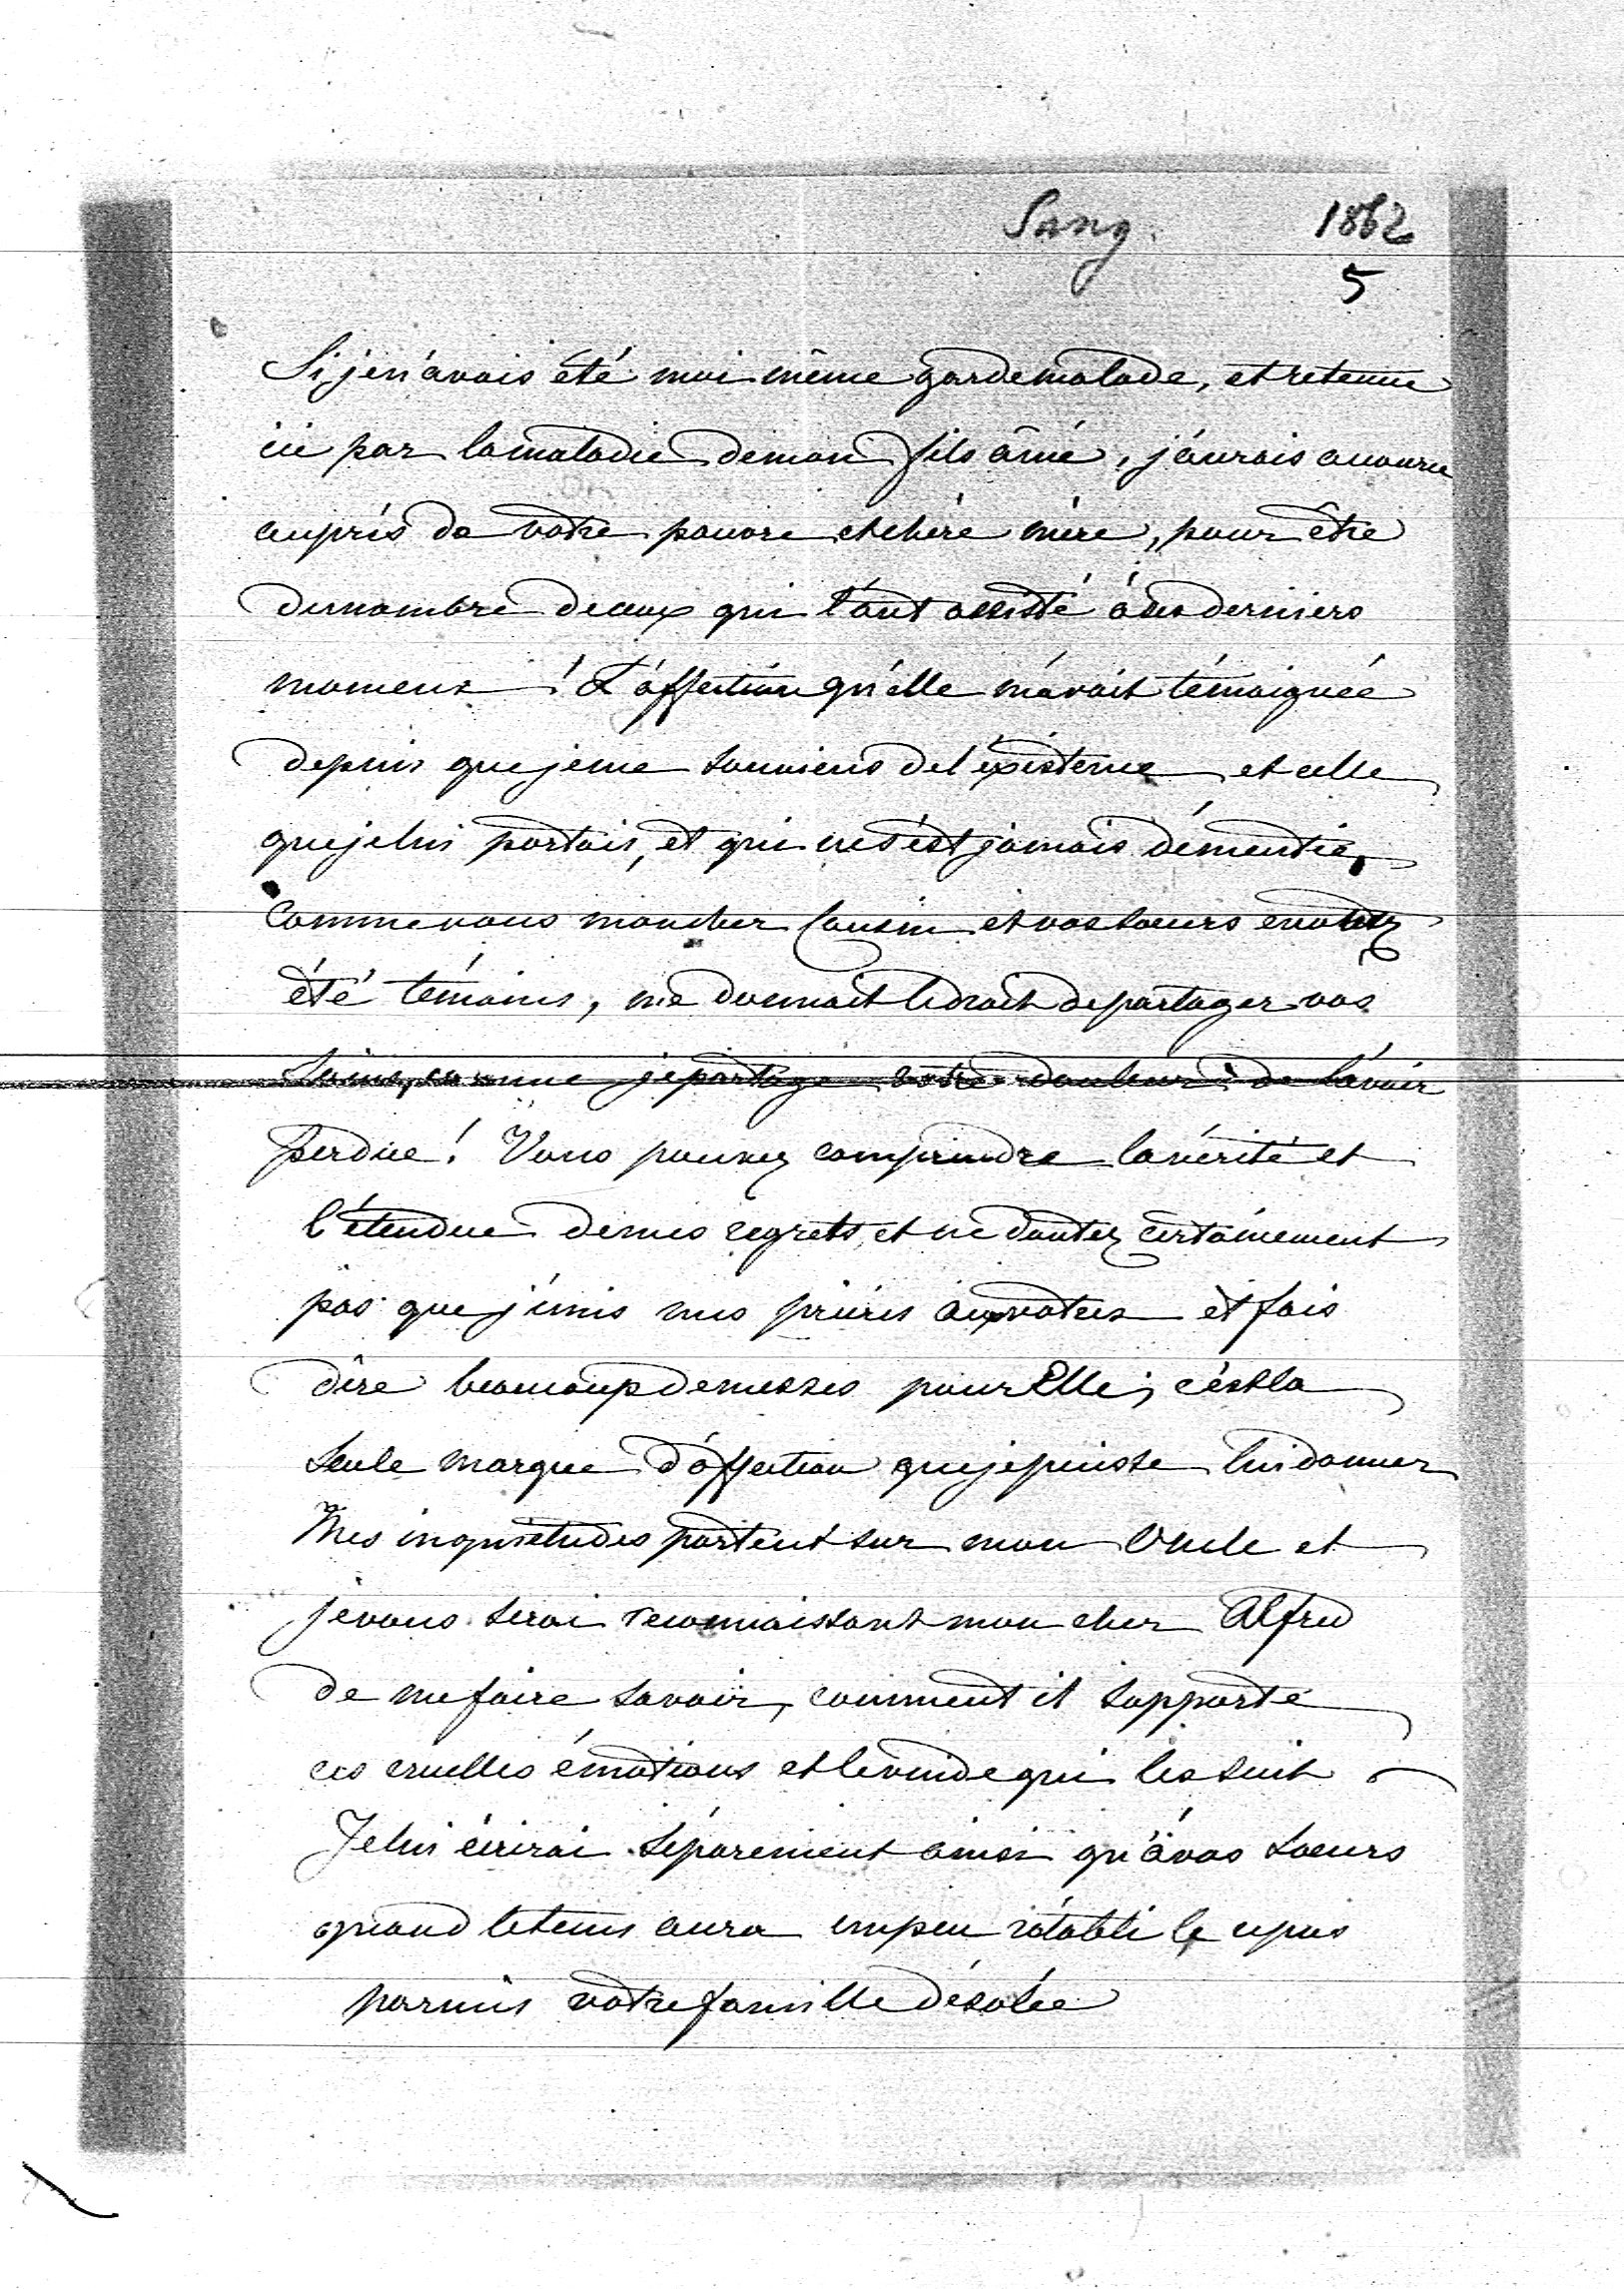 Sang. 1862
5
Si je n'avais été moi même garde malade, et retenue
ici par la maladie de mon fils aîné, j'aurais accouru
auprès de votre pauvre et chère mère, pour être
du nombre de ceux qui l'ont assisté à ses derniers
momens ! L'affection qu'elle m'avait témoignée
depuis que je me souviens de l'existence et celle
que je lui portais, et qui ne s'est jamais démentie,
Comme vous mon cher Cousin et vos soeurs en
été témoins, me donnait le droit de partager vos
soins, comme je partage votre douleur de l'avoir
perdue ! Vous pouvez comprendre la vérité et
l'étendue de mes regrets, et ne doutez certainement
pas que j'unis mes prières aux votres et fais
dire beaucoup de messes pour Elle, c'est la
seule marque d'affection que je puisse lui donner
Mes inquiétudes portent sur mon Oncle et
je vous serai reconnaissant mon cher Alfred
de me faire savoir, comment il supporte
ces cruelles émotions et le vuide qui les suit
Je lui écrirai séparement ainsi qu'à vos soeurs
quand le tems aura un peu rétabli le repos
parmis votre famille désolée